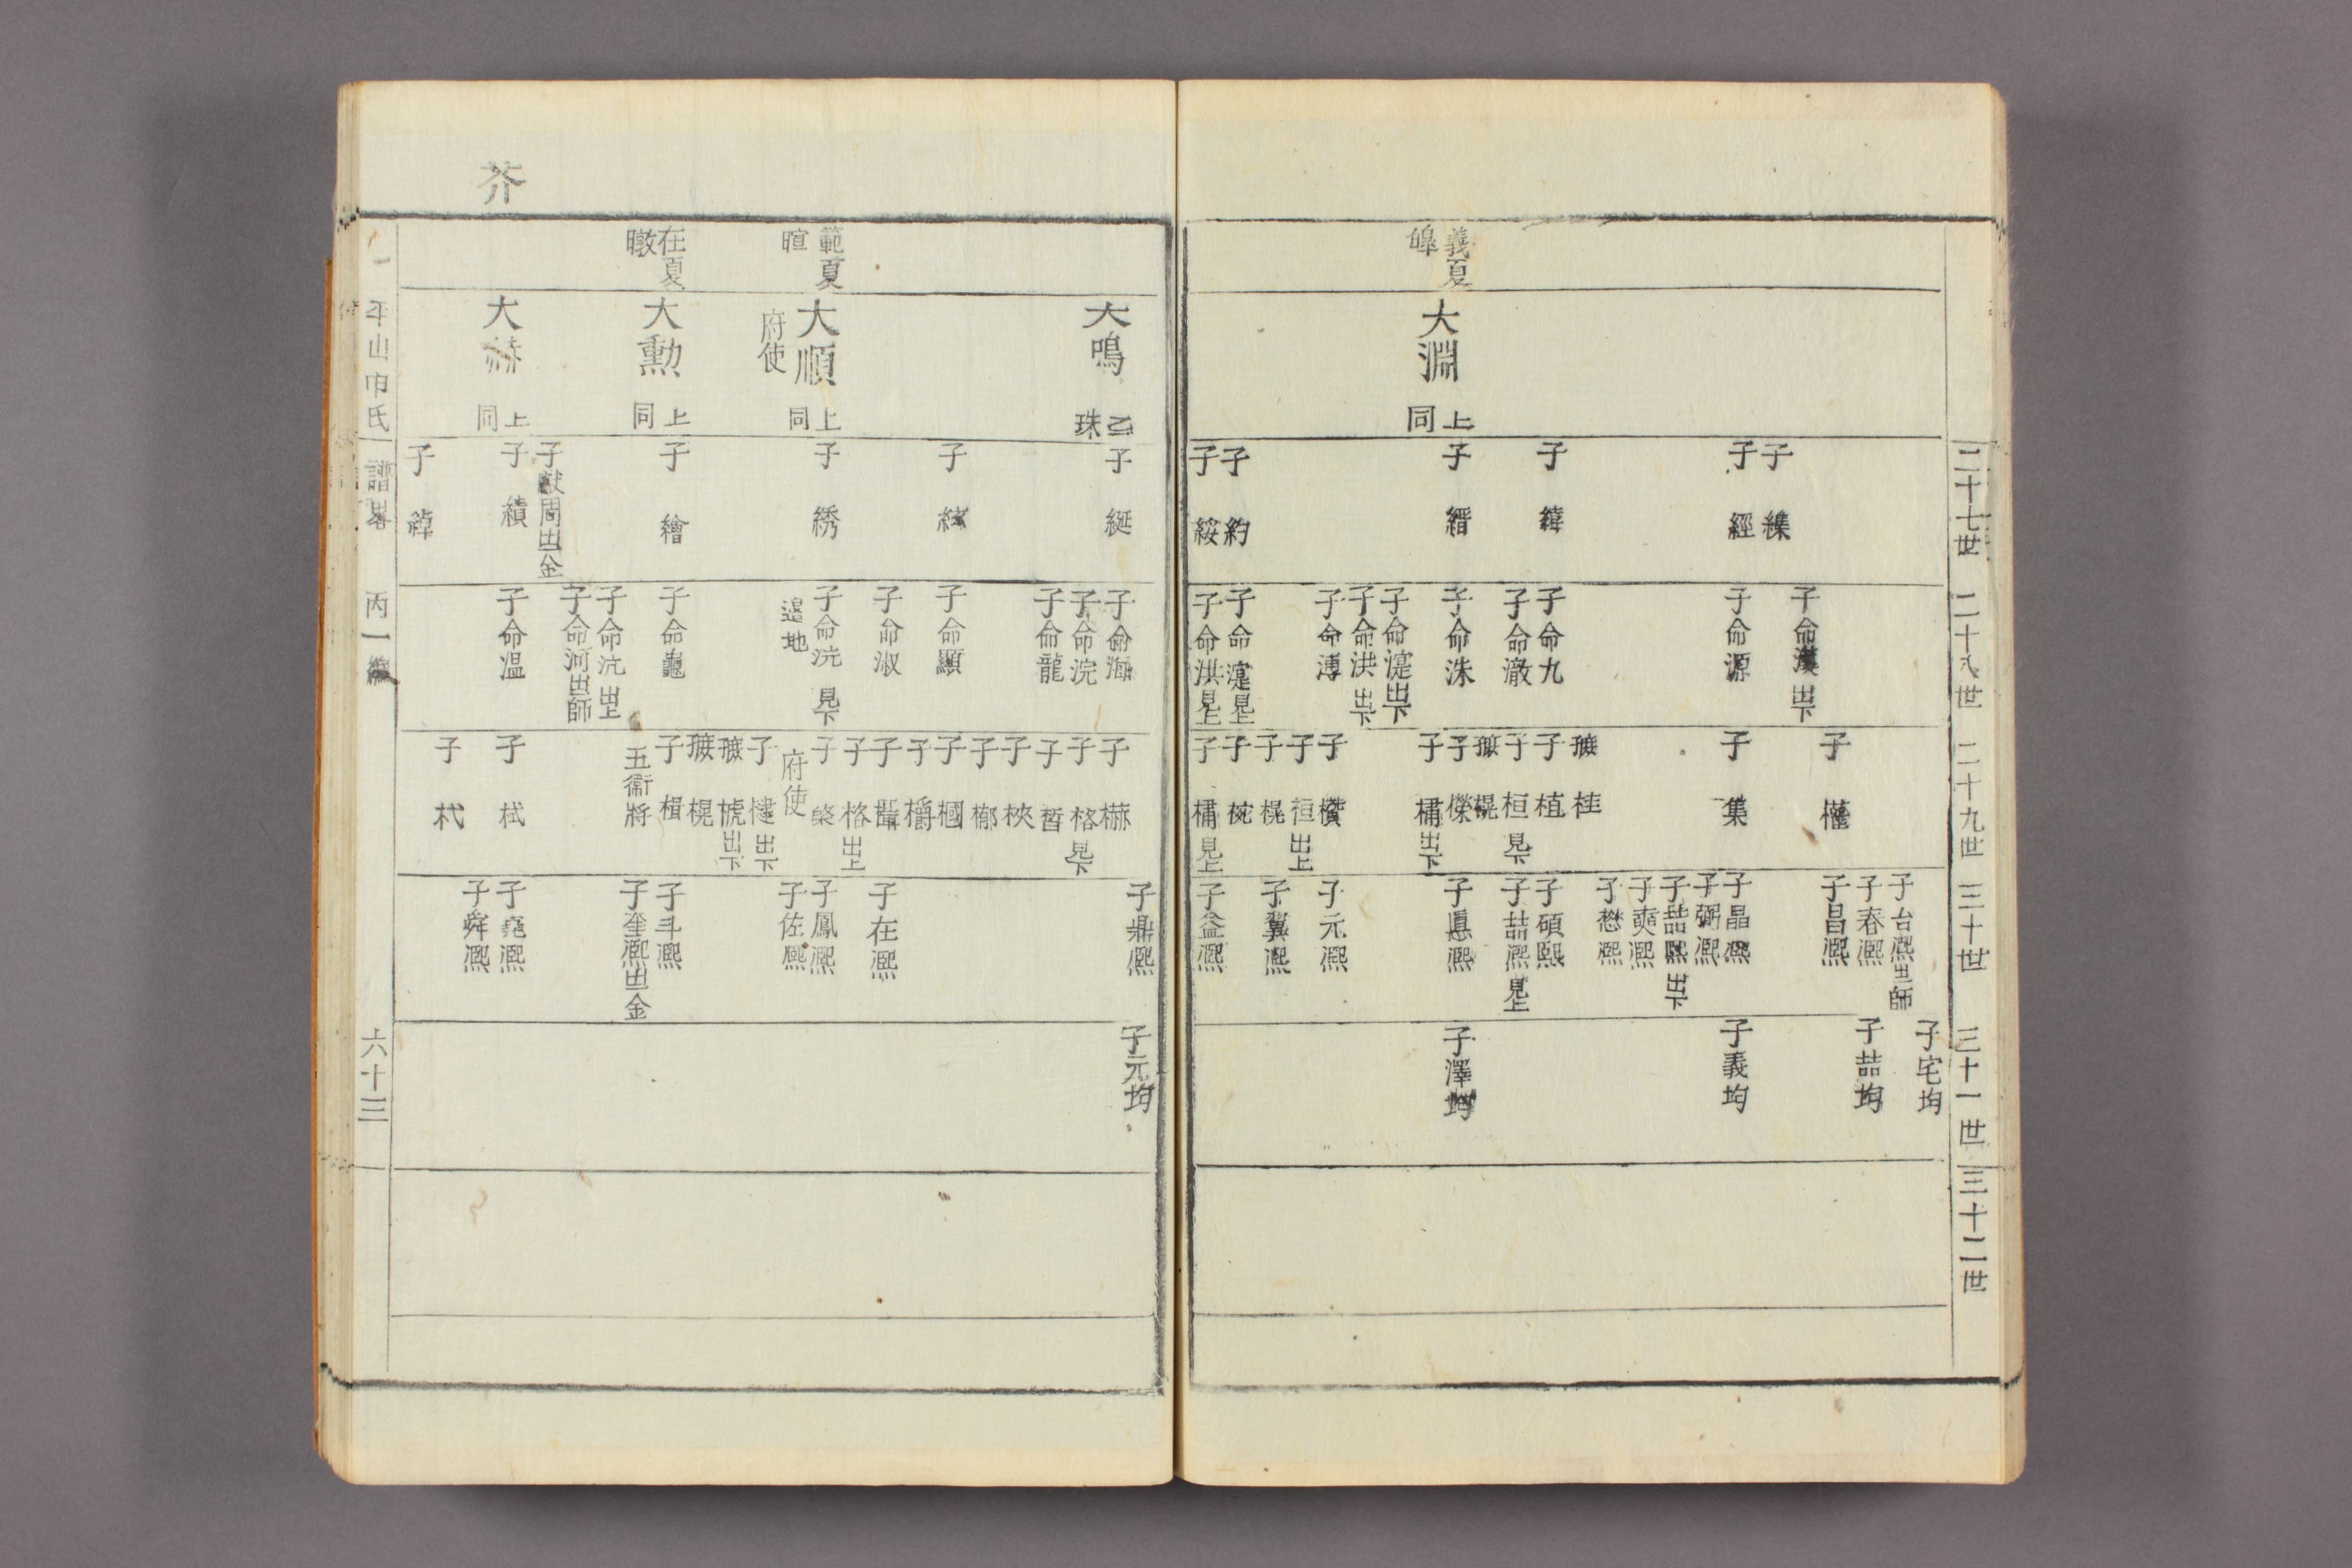 二十七世
二十八世
二十九世
三十世
三十一世
三十二世
義夏
皞
大淵
上
同
子 緤
子 經
子 緯
子 縉
子 約
子 綏
子命漢 出下
子命源
子命九
子命澈
子命洙
子命瀗 出下
子命洪 出下
子命溥
子命瀗 見上
子命洪 見上
子 權
子 集
桂
子 植
子 桓 見下
榥
子 欁
子 橚 出下
子 欑
子 桓 出上
子 榥
子 椀
子 橚 見上
子台熙 出師
子春熙
子昌熙
子晶熙
子弼熙
子喆熙 出下
子奭熙
子懋熙
子碩熙
子喆熙 見上
子悳熙
子元熙
子冀熙
子益熙
子宅均
子喆均
子義均
子澤均
芥
範夏
暄
在夏
暾
大鳴
乙
珠
大順
府使
上
同
大勳
上
同
大赫
上
同
子 綎
子 絃
子 綉
子 繪
子獻周 出金
子 績
子 綽
子命海
子命浣
子命龍
子命顯
子命淑
子命浣 見下
邊地
子命龜
子命沆 出上
子命河 出師
子命溫
子 格 見下
子 晳
子 梜
子 槨
子 槶
子 欍
子 欇
子 格 出上
子 棨
府使
子 楗 出下
榥
子 楫
五衛將
子 栻
子 杙
子鼎熙
子在熙
子鳳熙
子佐熙
子斗熙
子奎熙 出金
子堯熙
子舜熙
子元均
平山申氏
譜畧
丙一編
六十三